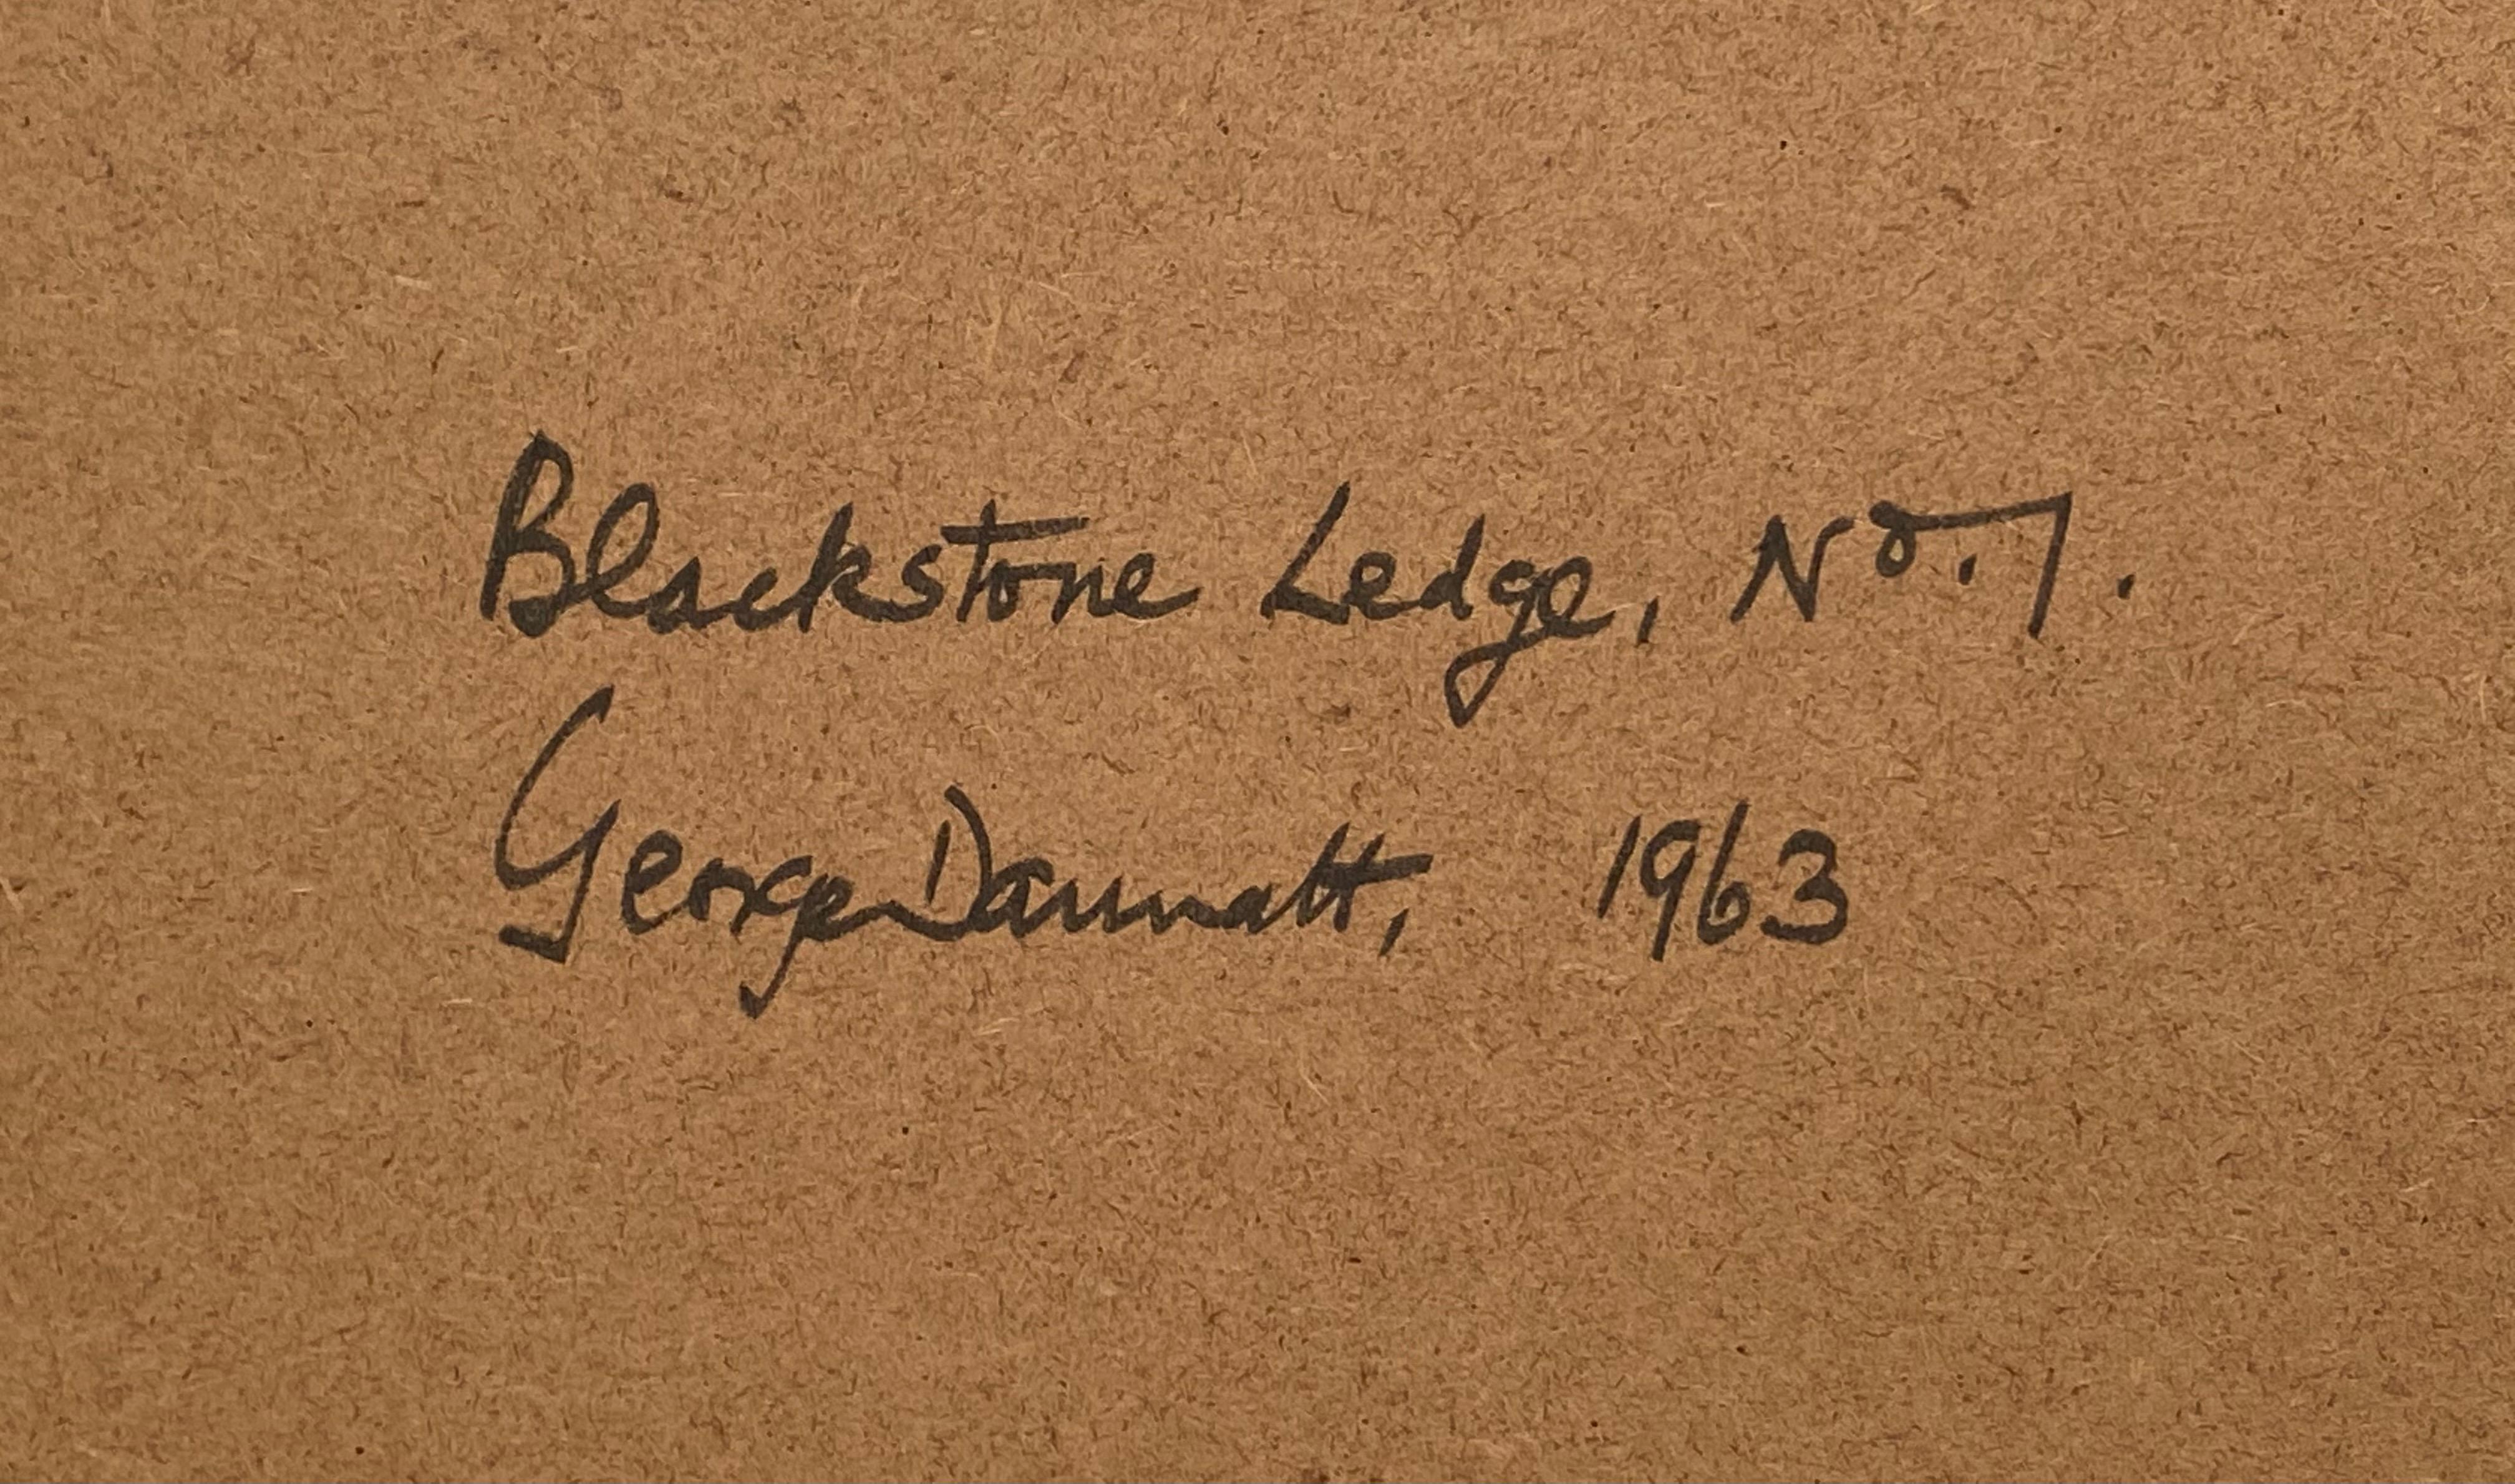 Blackstone Ledge, No. 1.
George Dannatt, 1963